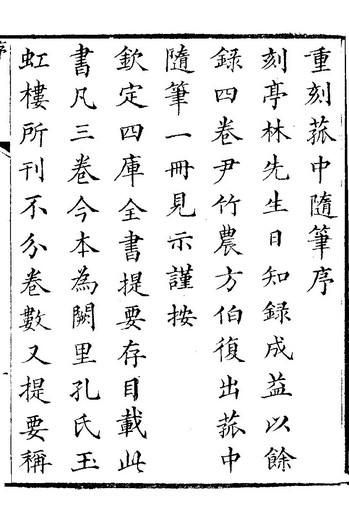 重刻菰中隨筆序
刻亭林先生日知錄成益以餘
錄四卷尹竹農方伯復出菰中
隨筆一冊見示謹按
欽定四庫全書提要存目載此
書凡三卷今本為闕里孔氏玉
虹樓所刊不分卷數又提要稱